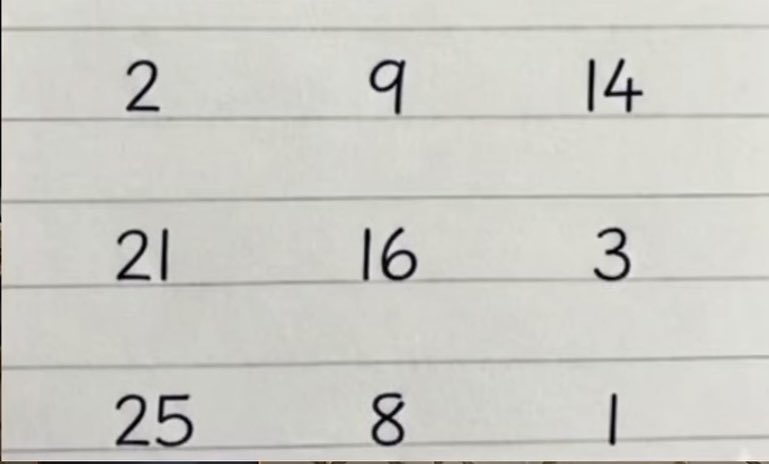 2 9 14
21 16 3
25 8 1